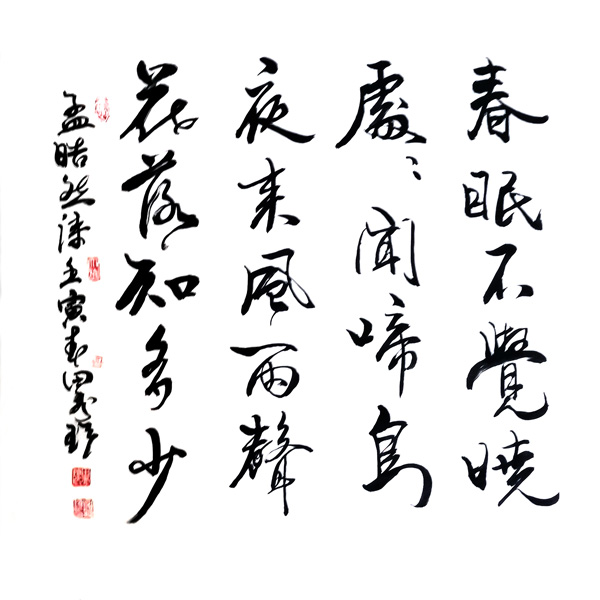 春眠不覺曉
處々聞啼鳥
夜来風雨聲
花落知多少
孟浩然 壬寅春